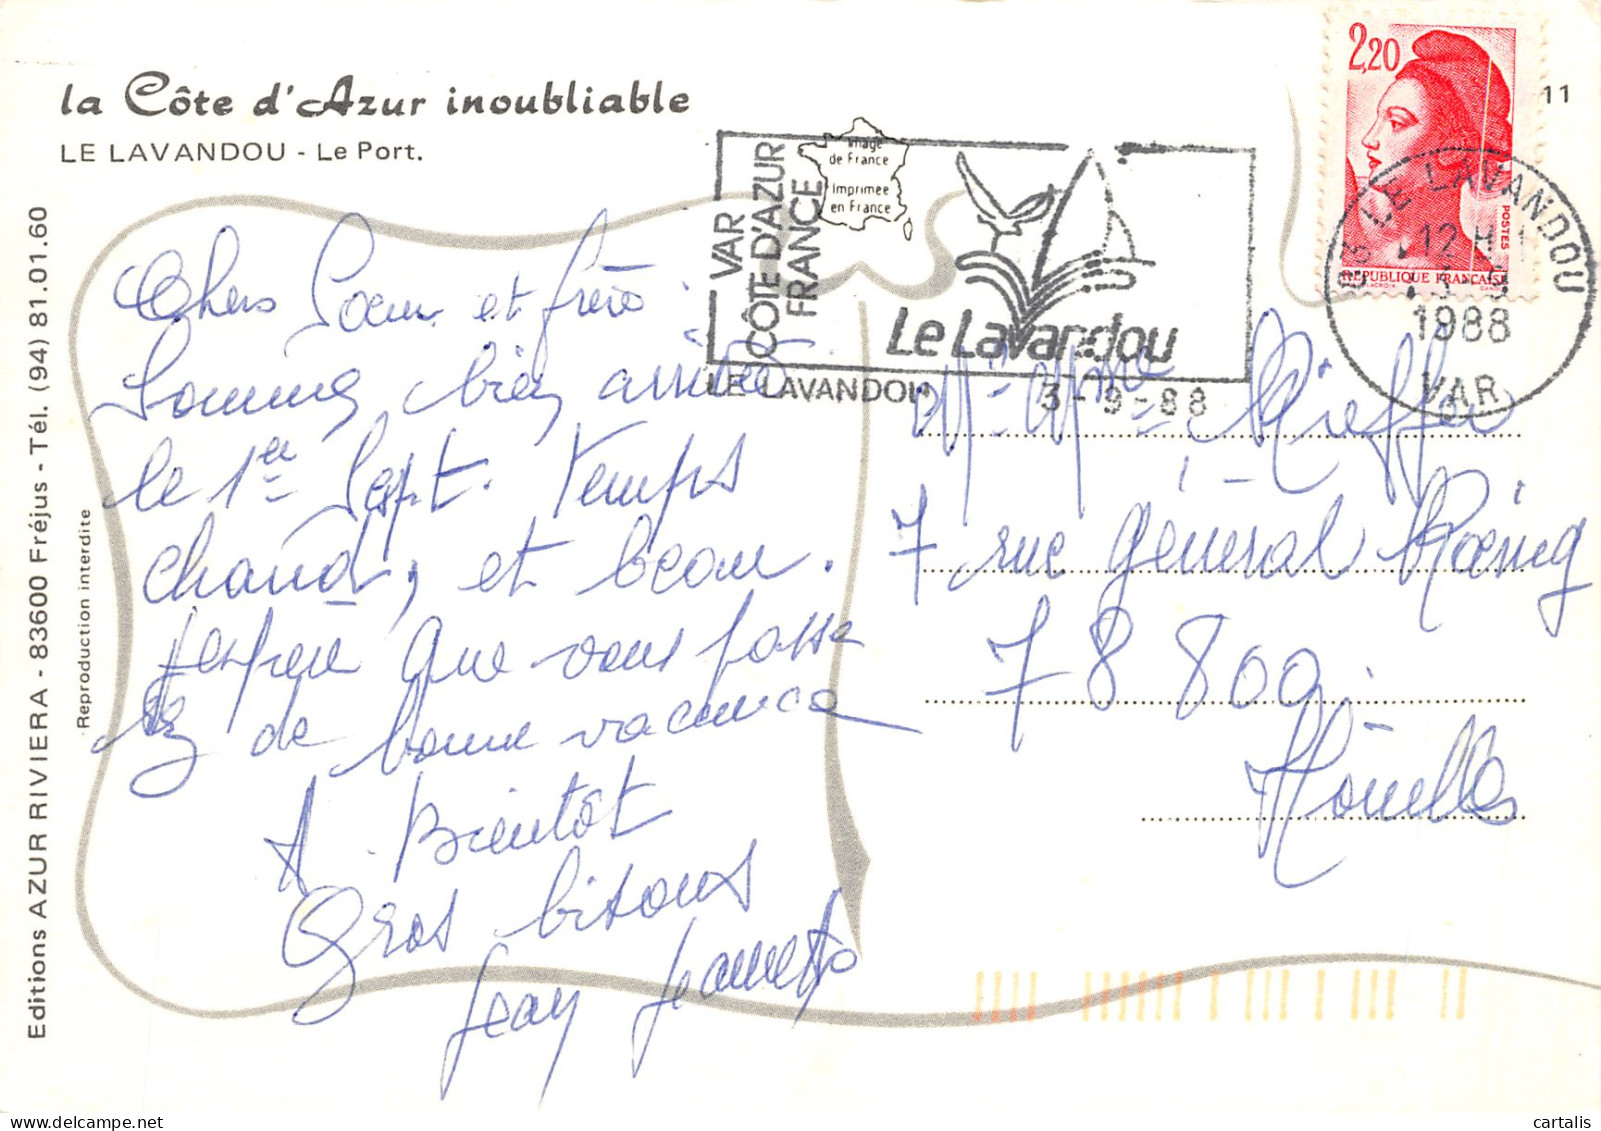 la Côte d'Azur inoubliable
LE LAVANDOU - Le Port.
11
2,20
POSTES
RÉPUBLIQUE FRANÇAISE
LE LAVANDOU
12 H
1988
VAR
VAR
CÔTE D'AZUR
FRANCE
Image
de France
Imprimée
en France
Le Lavandou
LE LAVANDOU 3-9-88
Editions AZUR RIVIERA - 83600 Fréjus - Tél. (94) 81.01.60
Reproduction interdite
Chers Soeur et frère.
Sommes bien arrivés
le 1er Sept. Temps
chaud, et beau.
J'espère que vous passe
rez de bonne vacance
A Bientôt
Gros bisous
Jean Jeannette
Mr Mme Kieffer
7 rue général Kœnig
78 800.
Houilles
cartalis